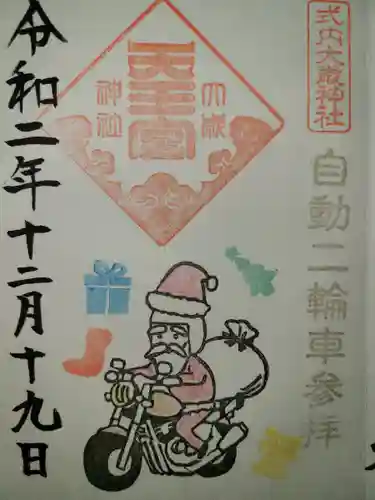 式内大歳神社
自動二輪車参拝
大歳
天王宮
神社
令和二年十二月十九日